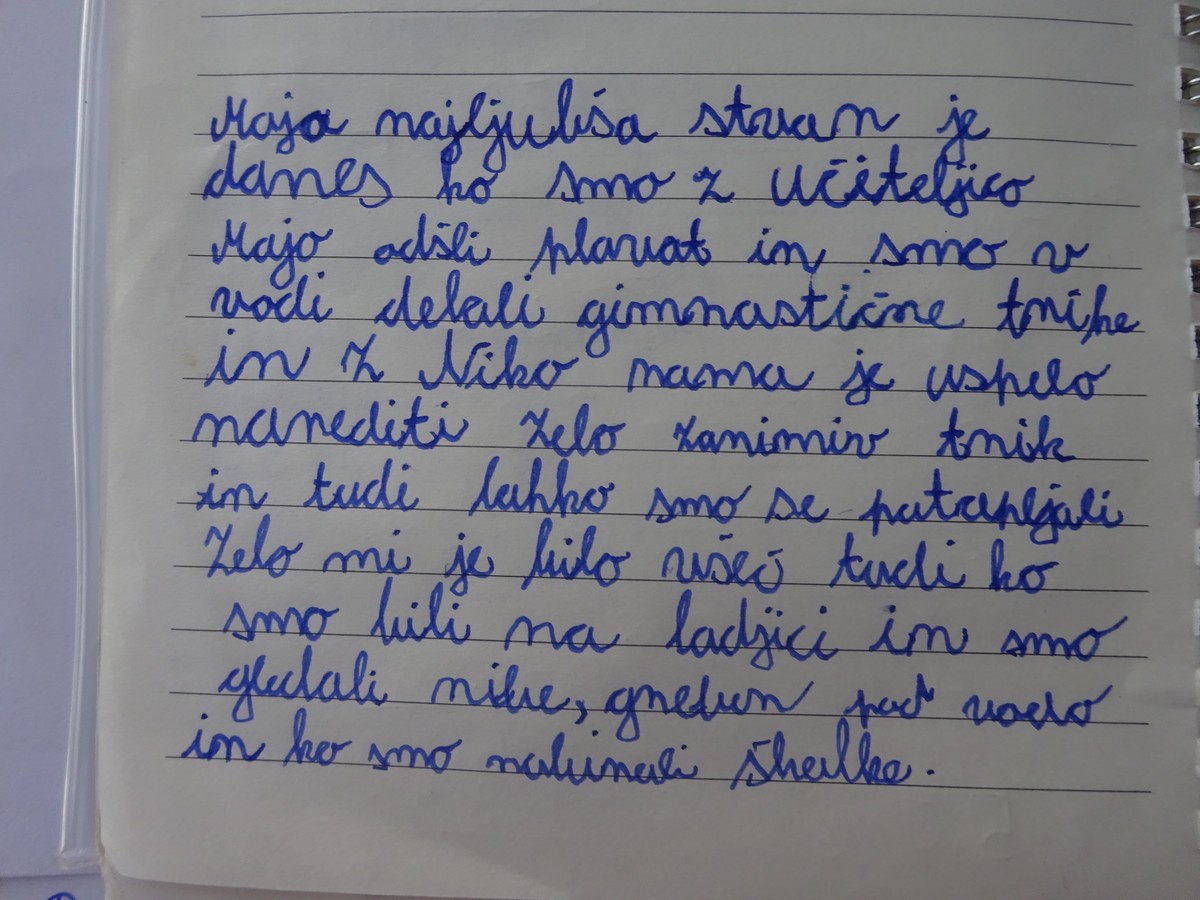 Moja najljubša stvar je
danes ko smo z učiteljico
Majo odšli plavat in smo v
vodi delali gimnastične trike
in z Niko nama je uspelo
narediti zelo zanimiv trik
in tudi lahko smo se potapljali
Zelo mi je bilo všeč tudi ko
smo bili na ladjici in smo
gledali ribe, greben pod vodo
in ko smo nabirali školjke.